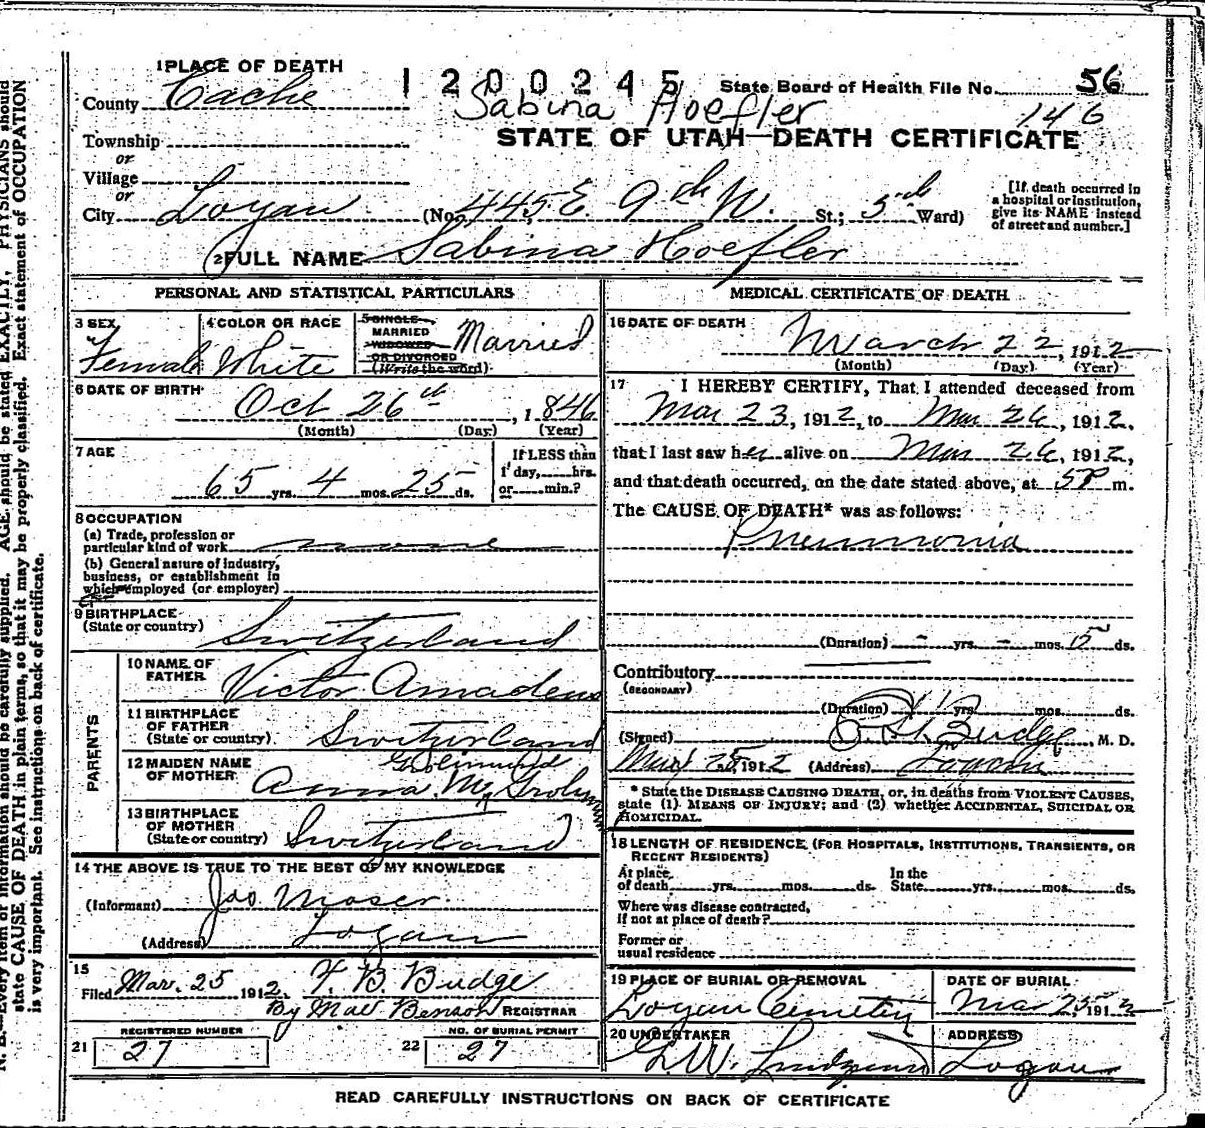 1 PLACE OF DEATH
1200245 State Board of Health File No. 56
County Cache
Sabina Hoefler 146
STATE OF UTAH—DEATH CERTIFICATE
Township
or
Village
or
City Logan (No. 445 E 9th N. St.; 5th Ward)
[If death occurred in
a hospital or institution,
give its NAME instead
of street and number.]
2 FULL NAME Sabina Hoefler
PERSONAL AND STATISTICAL PARTICULARS
3 SEX
Female
4 COLOR OR RACE
White
5 SINGLE
MARRIED
WIDOWED
OR DIVORCED
(Write the word)
Married
6 DATE OF BIRTH
Oct 26th, 1846
(Month) (Day) (Year)
7 AGE
65 yrs. 4 mos. 25 ds.
If LESS than
1 day, hrs.
or min.?
8 OCCUPATION
(a) Trade, profession or
particular kind of work none
(b) General nature of industry,
business, or establishment in
which employed (or employer)
9 BIRTHPLACE
(State or country) Switzerland
PARENTS
10 NAME OF
FATHER Victor Amadeus
11 BIRTHPLACE
OF FATHER
(State or country) Switzerland
12 MAIDEN NAME
OF MOTHER Anna
13 BIRTHPLACE
OF MOTHER
(State or country) Switzerland
14 THE ABOVE IS TRUE TO THE BEST OF MY KNOWLEDGE
(Informant) Jas Moser
(Address) Logan
15
Filed Mar. 25 1912. F. B. Budge
By Mae Benson REGISTRAR
REGISTERED NUMBER
21 27
NO. OF BURIAL PERMIT
22 27
MEDICAL CERTIFICATE OF DEATH
16 DATE OF DEATH
March 22, 1912
(Month) (Day) (Year)
17 I HEREBY CERTIFY, That I attended deceased from
Mar 23, 1912, to Mar 26, 1912,
that I last saw her alive on Mar 26, 1912,
and that death occurred, on the date stated above, at 5P m.
The CAUSE OF DEATH* was as follows:
Pneumonia
(Duration) - yrs. - mos. 5 ds.
Contributory
(SECONDARY)
(Duration) yrs. mos. ds.
(Signed) Budge, M. D.
Mar 25, 1912 (Address) Logan
* State the DISEASE CAUSING DEATH, or, in deaths from VIOLENT CAUSES,
state (1) MEANS OF INJURY; and (2) whether ACCIDENTAL, SUICIDAL OR
HOMICIDAL.
18 LENGTH OF RESIDENCE (FOR HOSPITALS, INSTITUTIONS, TRANSIENTS, OR
RECENT RESIDENTS)
At place In the
of death yrs. mos. ds. State yrs. mos. ds.
Where was disease contracted,
if not at place of death?
Former or
usual residence
19 PLACE OF BURIAL OR REMOVAL
Logan Cemetery
DATE OF BURIAL
Mar 25, 1912
20 UNDERTAKER
ADDRESS
Logan
READ CAREFULLY INSTRUCTIONS ON BACK OF CERTIFICATE
N. B.—Every item of information should be carefully supplied. AGE should be stated EXACTLY. PHYSICIANS should
state CAUSE OF DEATH in plain terms, so that it may be properly classified. Exact statement of OCCUPATION
is very important. See instructions on back of certificate.